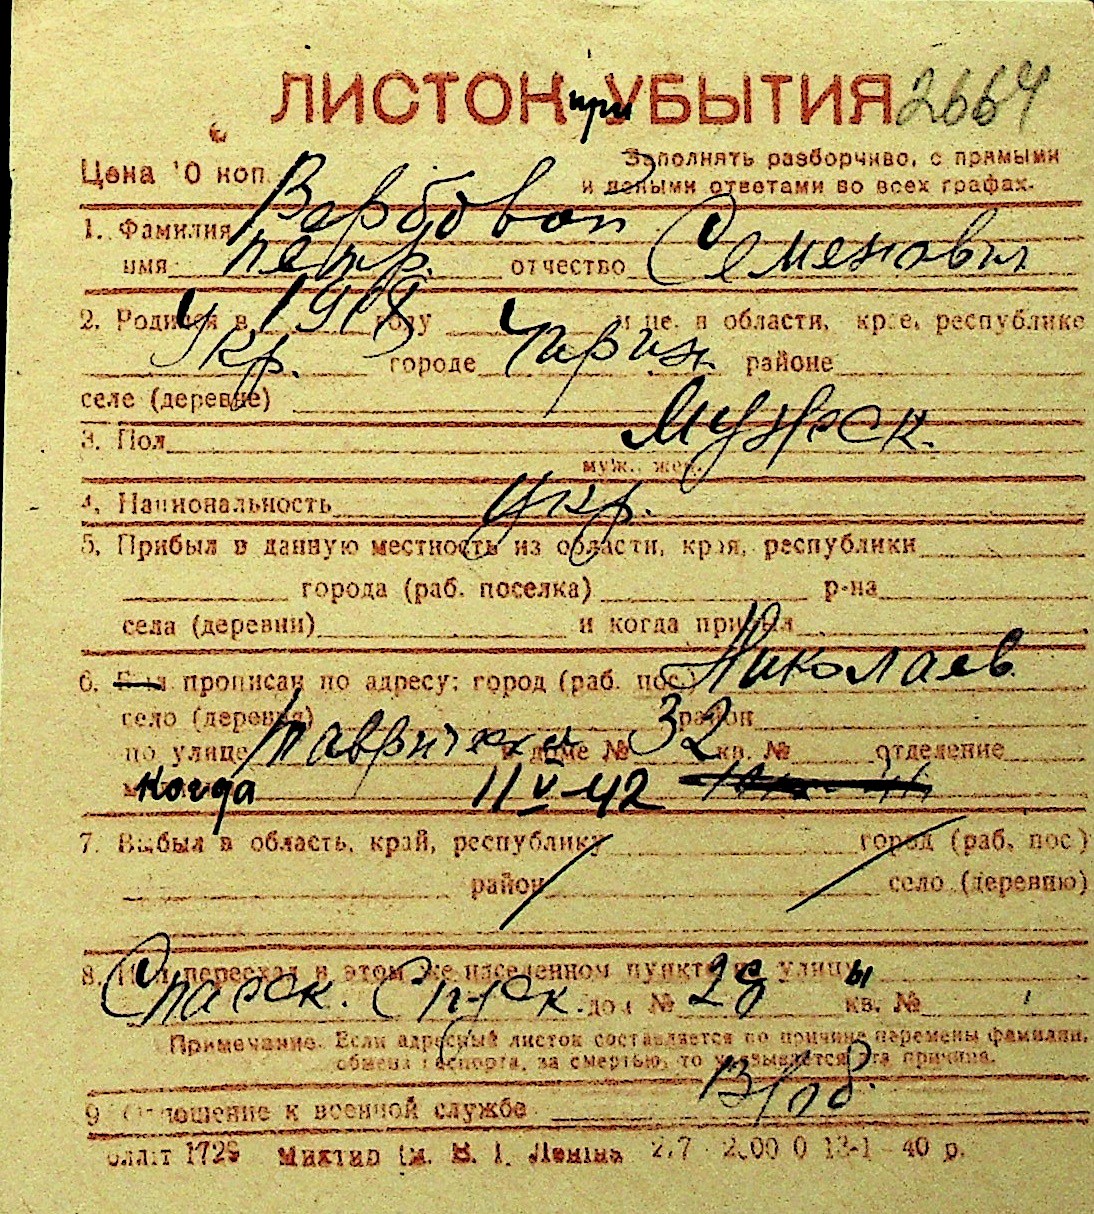 ЛИСТОК при УБЫТИЯ 2664
Цена 10 коп. Заполнять разборчиво, с прямыми
и ясными ответами во всех графах.
1. Фамилия Вербовой
имя Петр. отчество Семенович
2. Родился в 1908 году м-це, в области, крае, республике
Укр. городе районе
селе (деревне)
3. Пол Мужск.
муж., жен.
4. Национальность укр.
5. Прибыл в данную местность из области, края, республики
города (раб. поселка) р-на
села (деревни) и когда прибыл
6. Был прописан по адресу: город (раб. пос.) Николаев
село (деревня) район
по улице Таврическая в доме № 32 кв. № отделение
когда 11 V-42
7. Выбыл в область, край, республику город (раб. пос.)
район село (деревню)
8. Или переехал в этом же населенном пункте из улицы
Спасск. Спуск. дом № кв. №
Примечание. Если адресный листок составляется по причине перемены фамилии,
обмена паспорта, за смертью, то указывается эта причина.
9. Отношение к военной службе В/об.
1729 Миктип Ім. В. І. Леніна 40 р.